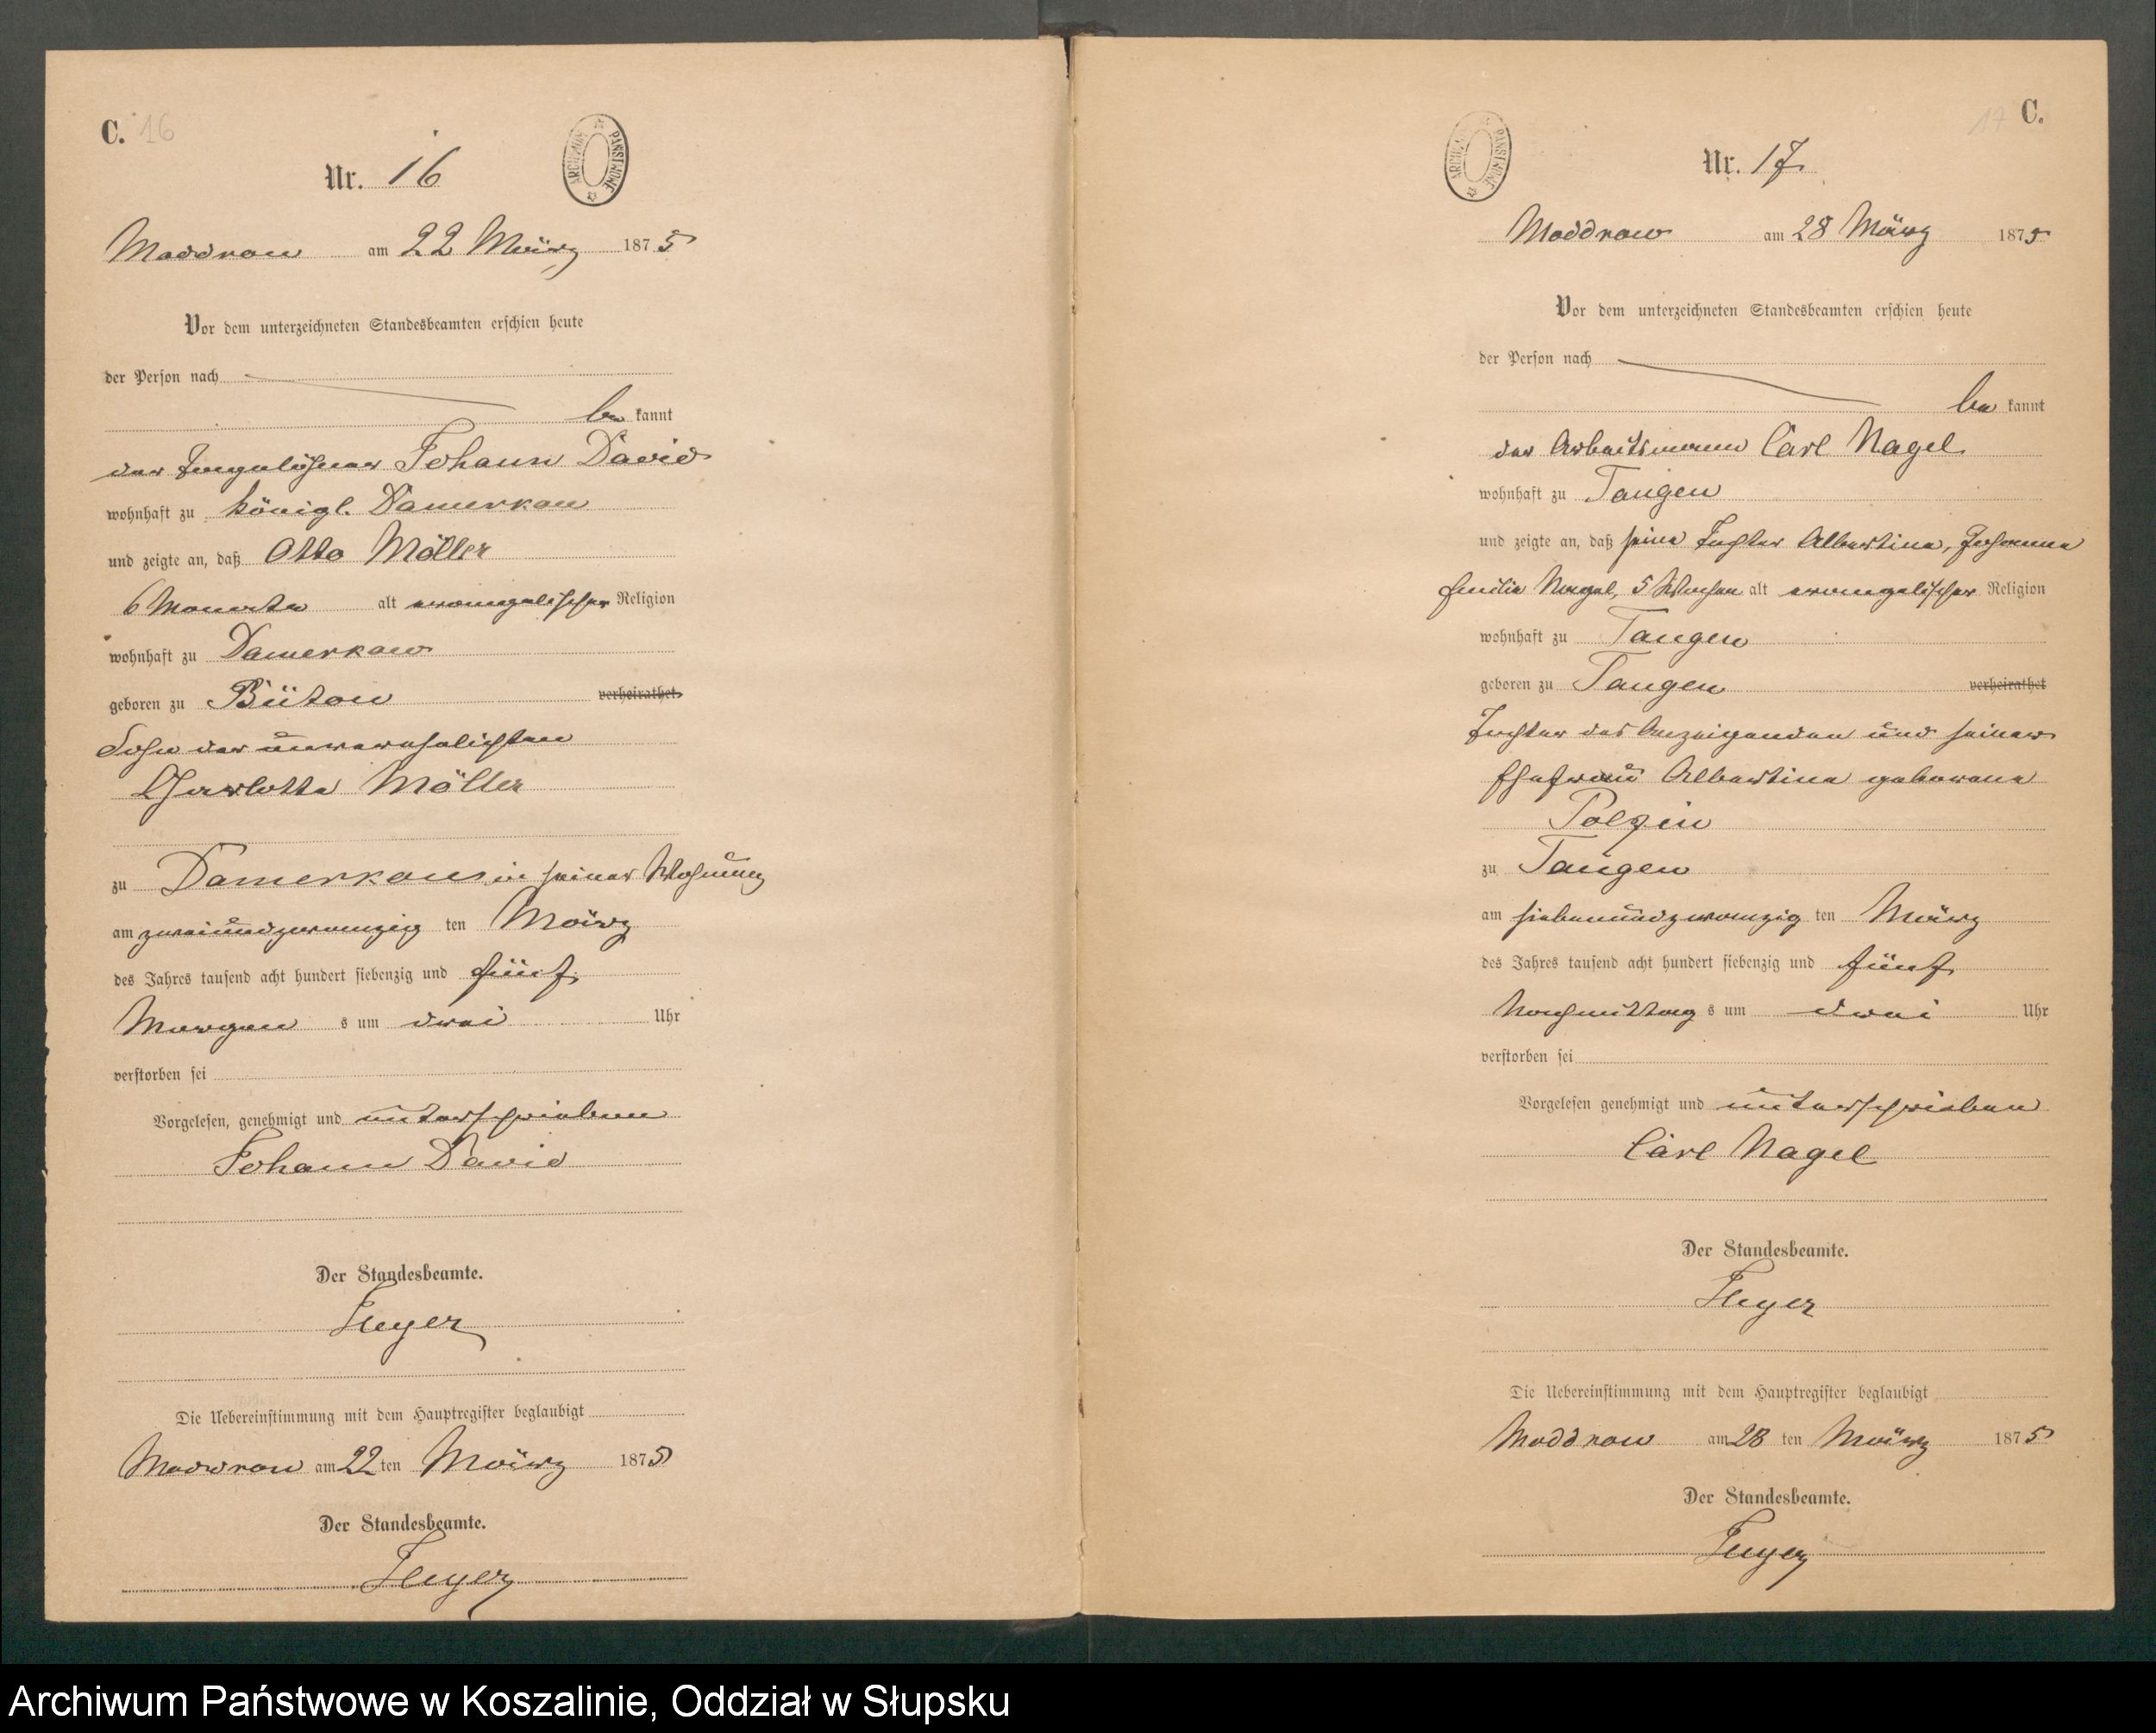 C. 16
Nr. 16
ARCHIWUM PAŃSTWOWE
Moddrow am 22 März 1875
Vor dem unterzeichneten Standesbeamten erschien heute
der Person nach
be kannt
der Johann David
wohnhaft zu Königl. Damerkow
und zeigte an, daß Otto Möller
6 Monate alt evangelischer Religion
wohnhaft zu Damerkow
geboren zu Bütow verheirathet
Sohn der unverehelichten
Charlotte Möller
zu Damerkow in seiner Wohnung
am zweiundzwanzig ten März
des Jahres tausend acht hundert siebenzig und fünf
Morgen s um drei Uhr
verstorben sei
Vorgelesen, genehmigt und unterschrieben
Johann David
Der Standesbeamte.
Die Uebereinstimmung mit dem Hauptregister beglaubigt
Moddrow am 22 ten März 1875
Der Standesbeamte.
17 C.
Nr. 17
ARCHIWUM PAŃSTWOWE
Moddrow am 28 März 1875
Vor dem unterzeichneten Standesbeamten erschien heute
der Person nach
be kannt
der Arbeitsmann Carl Nagel
wohnhaft zu Tangen
und zeigte an, daß seine Tochter Albertine, Johanne
Emilie Nagel, 5 Wochen alt evangelischer Religion
wohnhaft zu Tangen
geboren zu Tangen verheirathet
Tochter des Anzeigenden und seiner
Ehefrau Albertine geborene
Polzin
zu Tangen
am siebenundzwanzig ten März
des Jahres tausend acht hundert siebenzig und fünf
Nachmittag s um drei Uhr
verstorben sei
Vorgelesen genehmigt und unterschrieben
Carl Nagel
Der Standesbeamte.
Die Uebereinstimmung mit dem Hauptregister beglaubigt
Moddrow am 28 ten März 1875
Der Standesbeamte.
Archiwum Państwowe w Koszalinie, Oddział w Słupsku